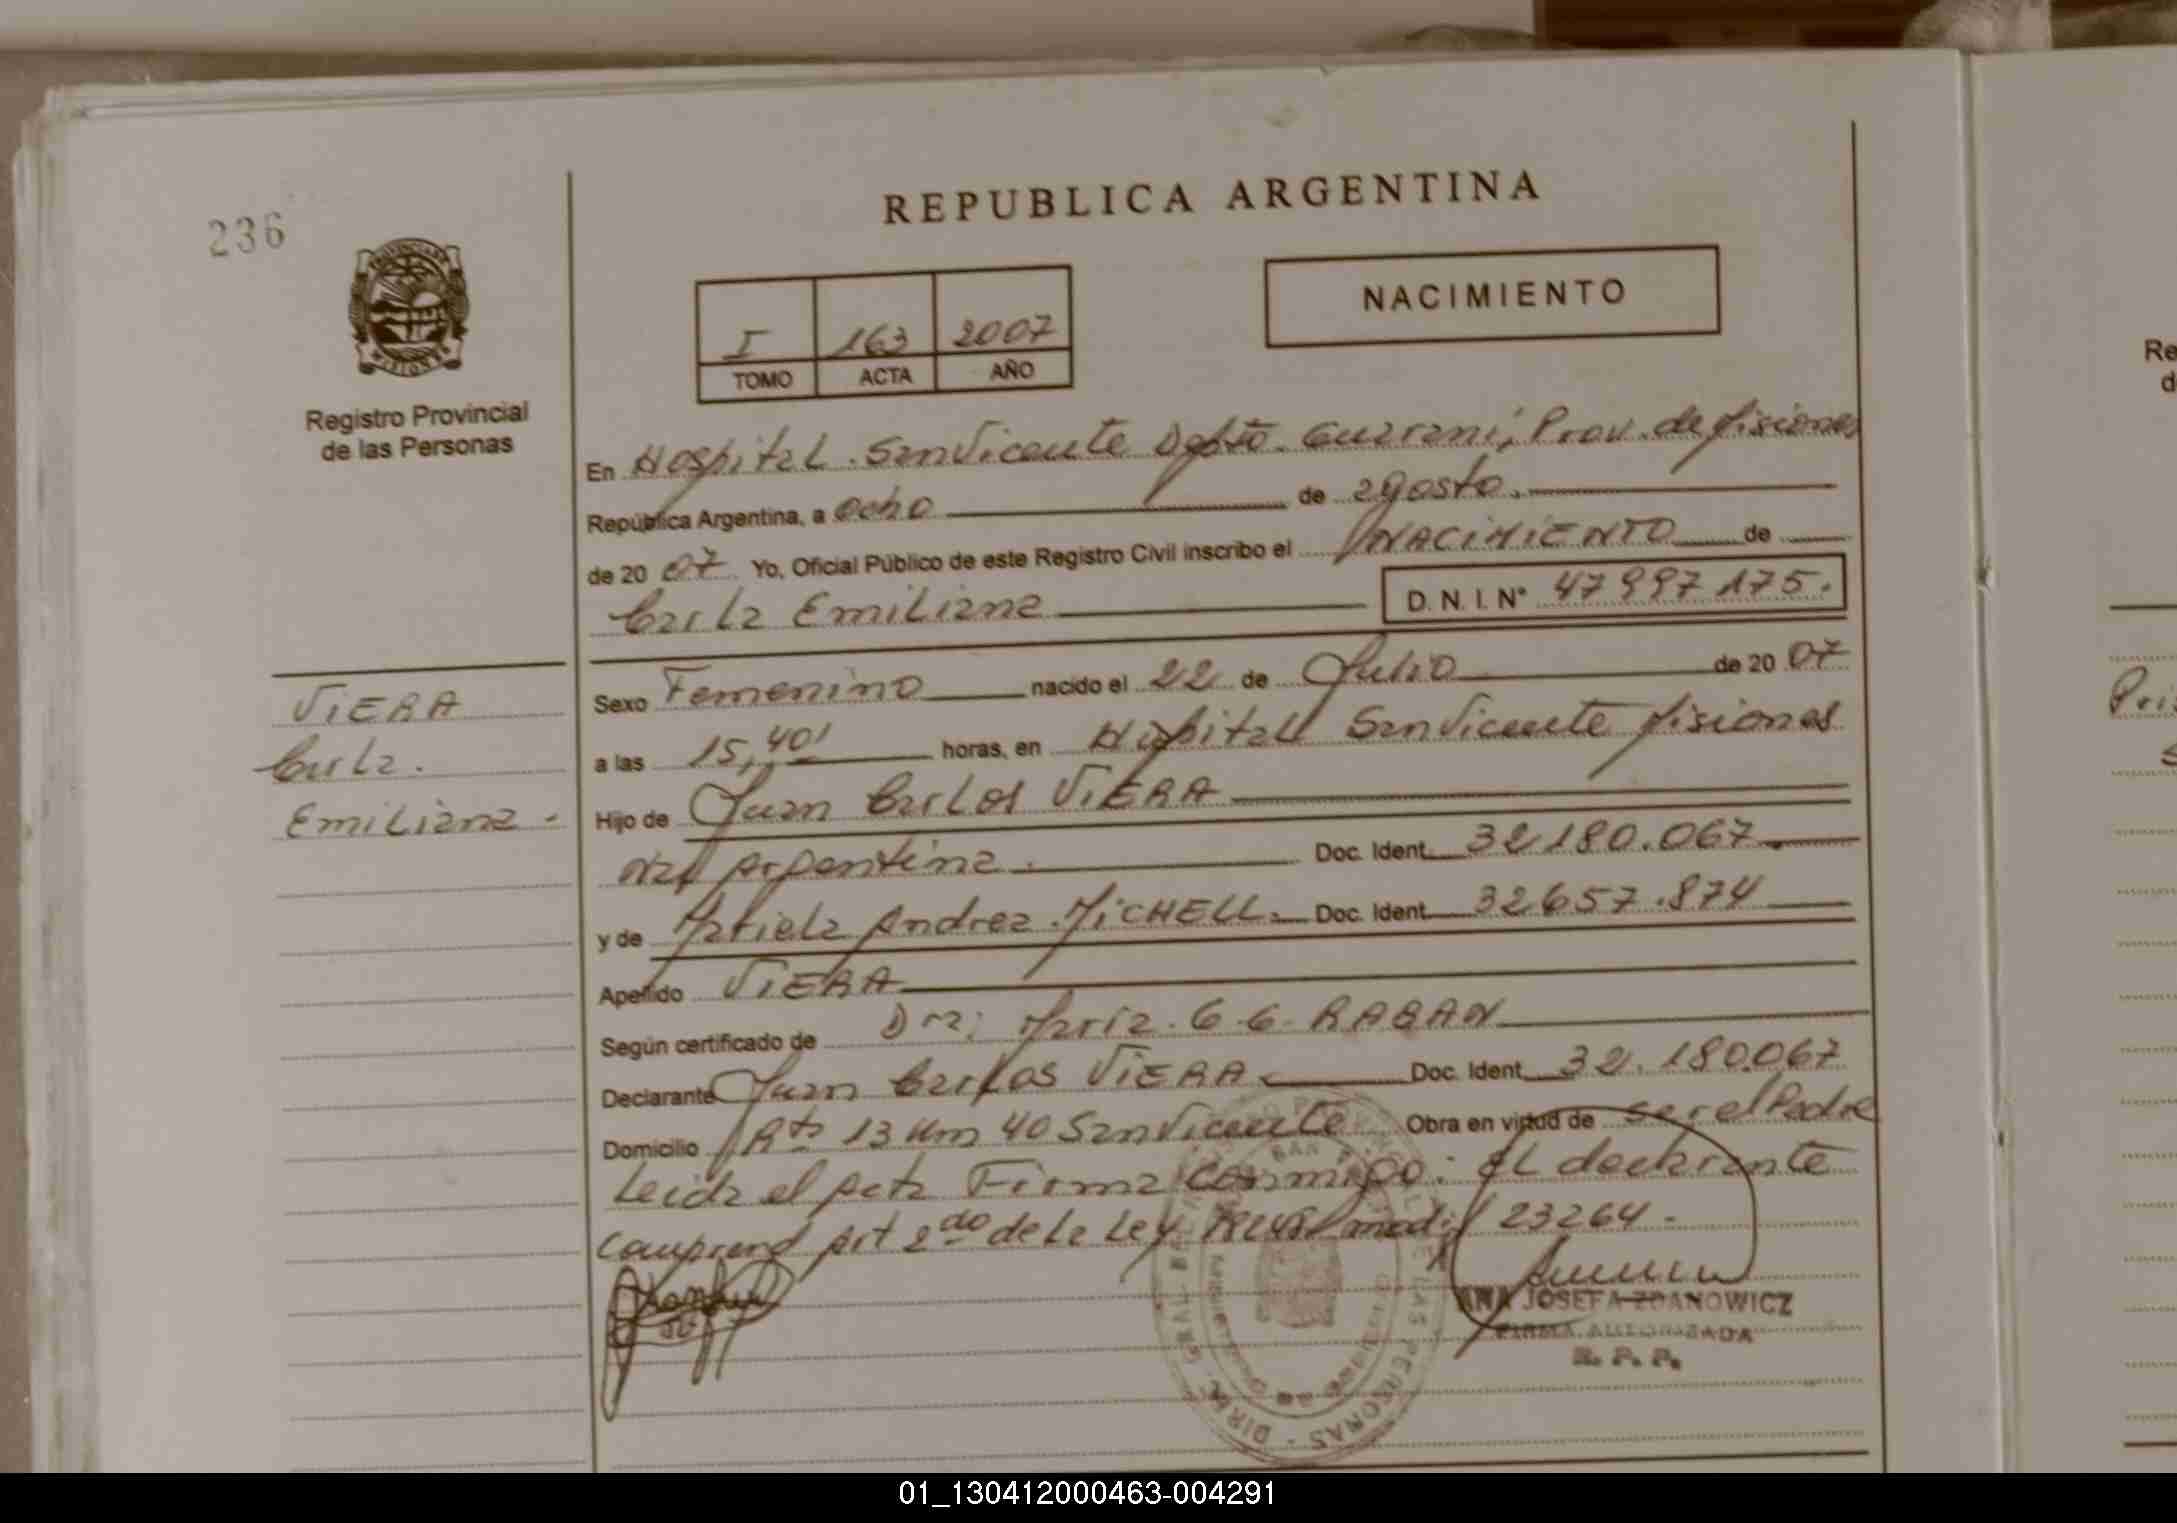 236
REPUBLICA ARGENTINA
NACIMIENTO
I 163 2007
TOMO ACTA AÑO
Registro Provincial
de las Personas
En Hospital. San Vicente Dpto. Guarani, Prov. de Misiones
República Argentina, a ocho de agosto.
de 2007 Yo, Oficial Público de este Registro Civil inscribo el NACIMIENTO de
Carla Emiliana D. N. I. N° 47997175.
VIERA
Carla.
Emiliana -
Sexo Femenino nacido el 22 de Julio de 2007
a las 15,40' horas, en Hospital San Vicente Misiones
Hijo de Juan Carlos VIERA
Nac Argentina. Doc. Ident. 32180.067
y de Mariela Andrea. MICHELL. Doc. Ident. 32657.874
Apellido VIERA
Según certificado de Dra: Maria. G. G. RABAN
Declarante Juan Carlos VIERA Doc. Ident. 32.180.067
Domicilio Rta 13 Km 40 San Vicente Obra en virtud de ser el Padre
Leida el Acta Firma conmigo: el declarante
Comprend Art 2do de la Ley modif 23264-
ANA JOSEFA ZDANOWICZ
FIRMA AUTORIZADA
R. P. P.
Re
d
Pri
S
01_130412000463-004291